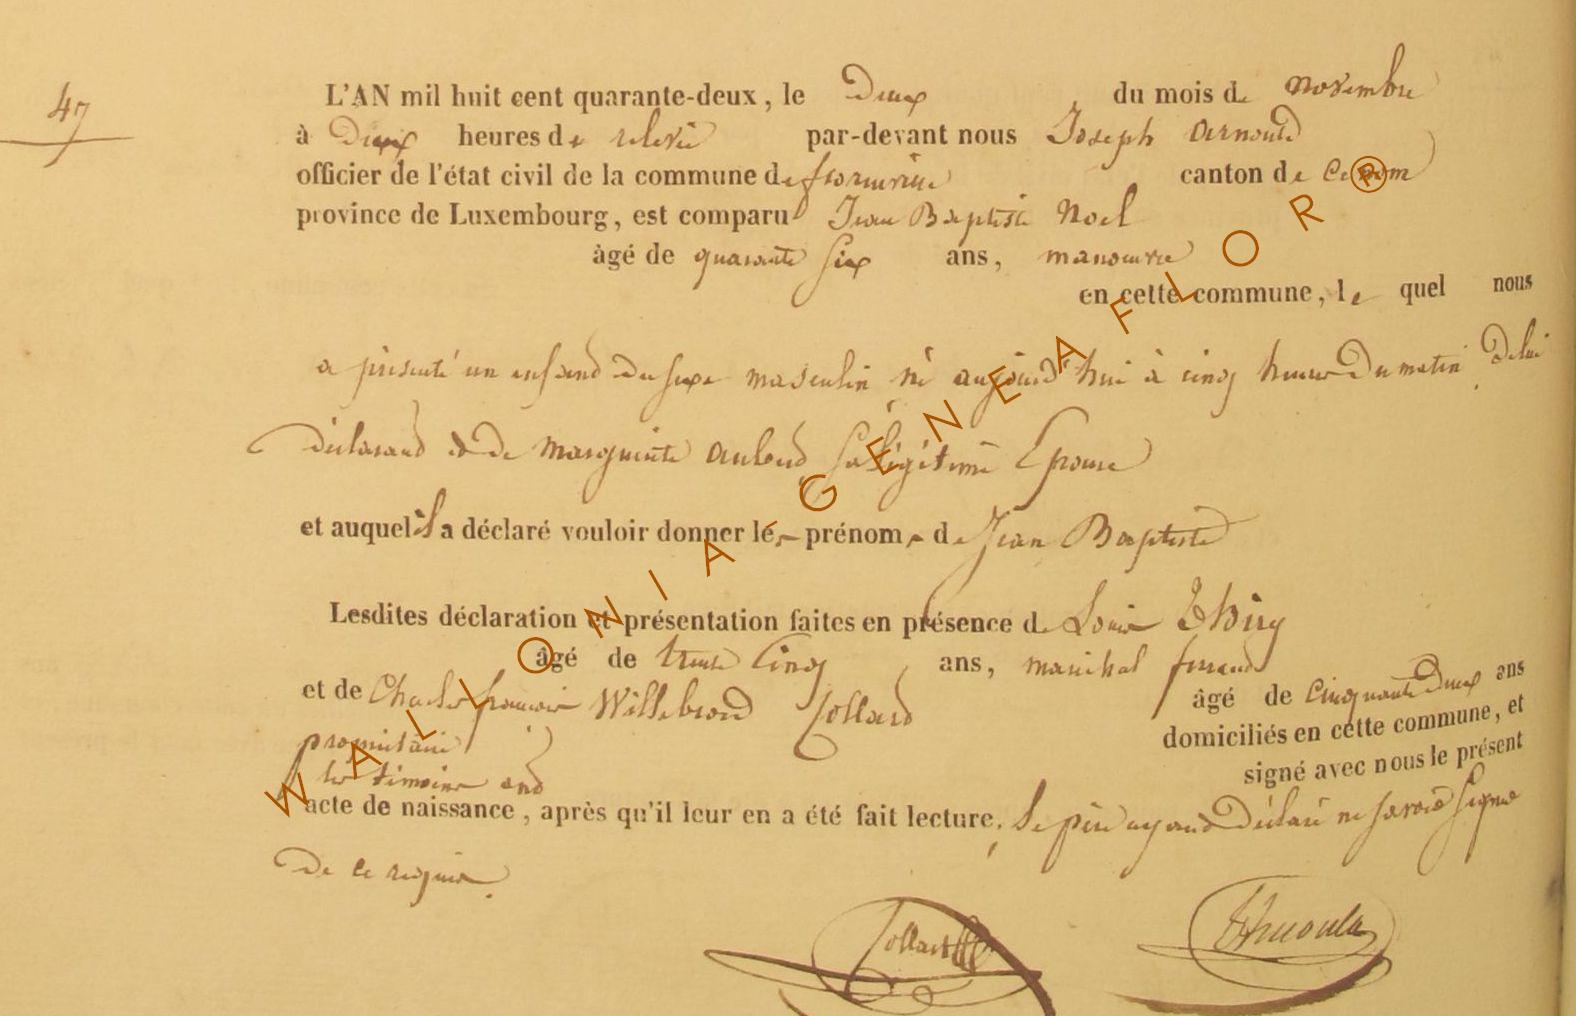 47
L'AN mil huit cent quarante-deux, le Deux du mois de novembre
à Deux heures de relevée par-devant nous Joseph Arnould
officier de l'état civil de la commune de florenville canton de
province de Luxembourg, est comparu Jean Baptiste Noel
âgé de quarante six ans, manoeuvre
en cette commune, le quel nous
a présenté un enfand du sexe masculin né aujourd'hui à cinq heures Du matin De lui
Déclarand & De Marguerite Sa légitime Epouse
et auquel il a déclaré vouloir donner les prénoms de Jean Baptiste
Lesdites déclaration et présentation faites en présence de Louis Thiry
âgé de trente Cinq ans, maréchal ferrand
et de Charles françois Willebrord Collard âgé de Cinquante Deux ans
propriétaire domiciliés en cette commune, et
les témoins ond signé avec nous le présent
acte de naissance, après qu'il leur en a été fait lecture, Le père ayand Déclaré ne savoir signer
De ce requis.
Collard
WALLONIA-GENEAFLOR®